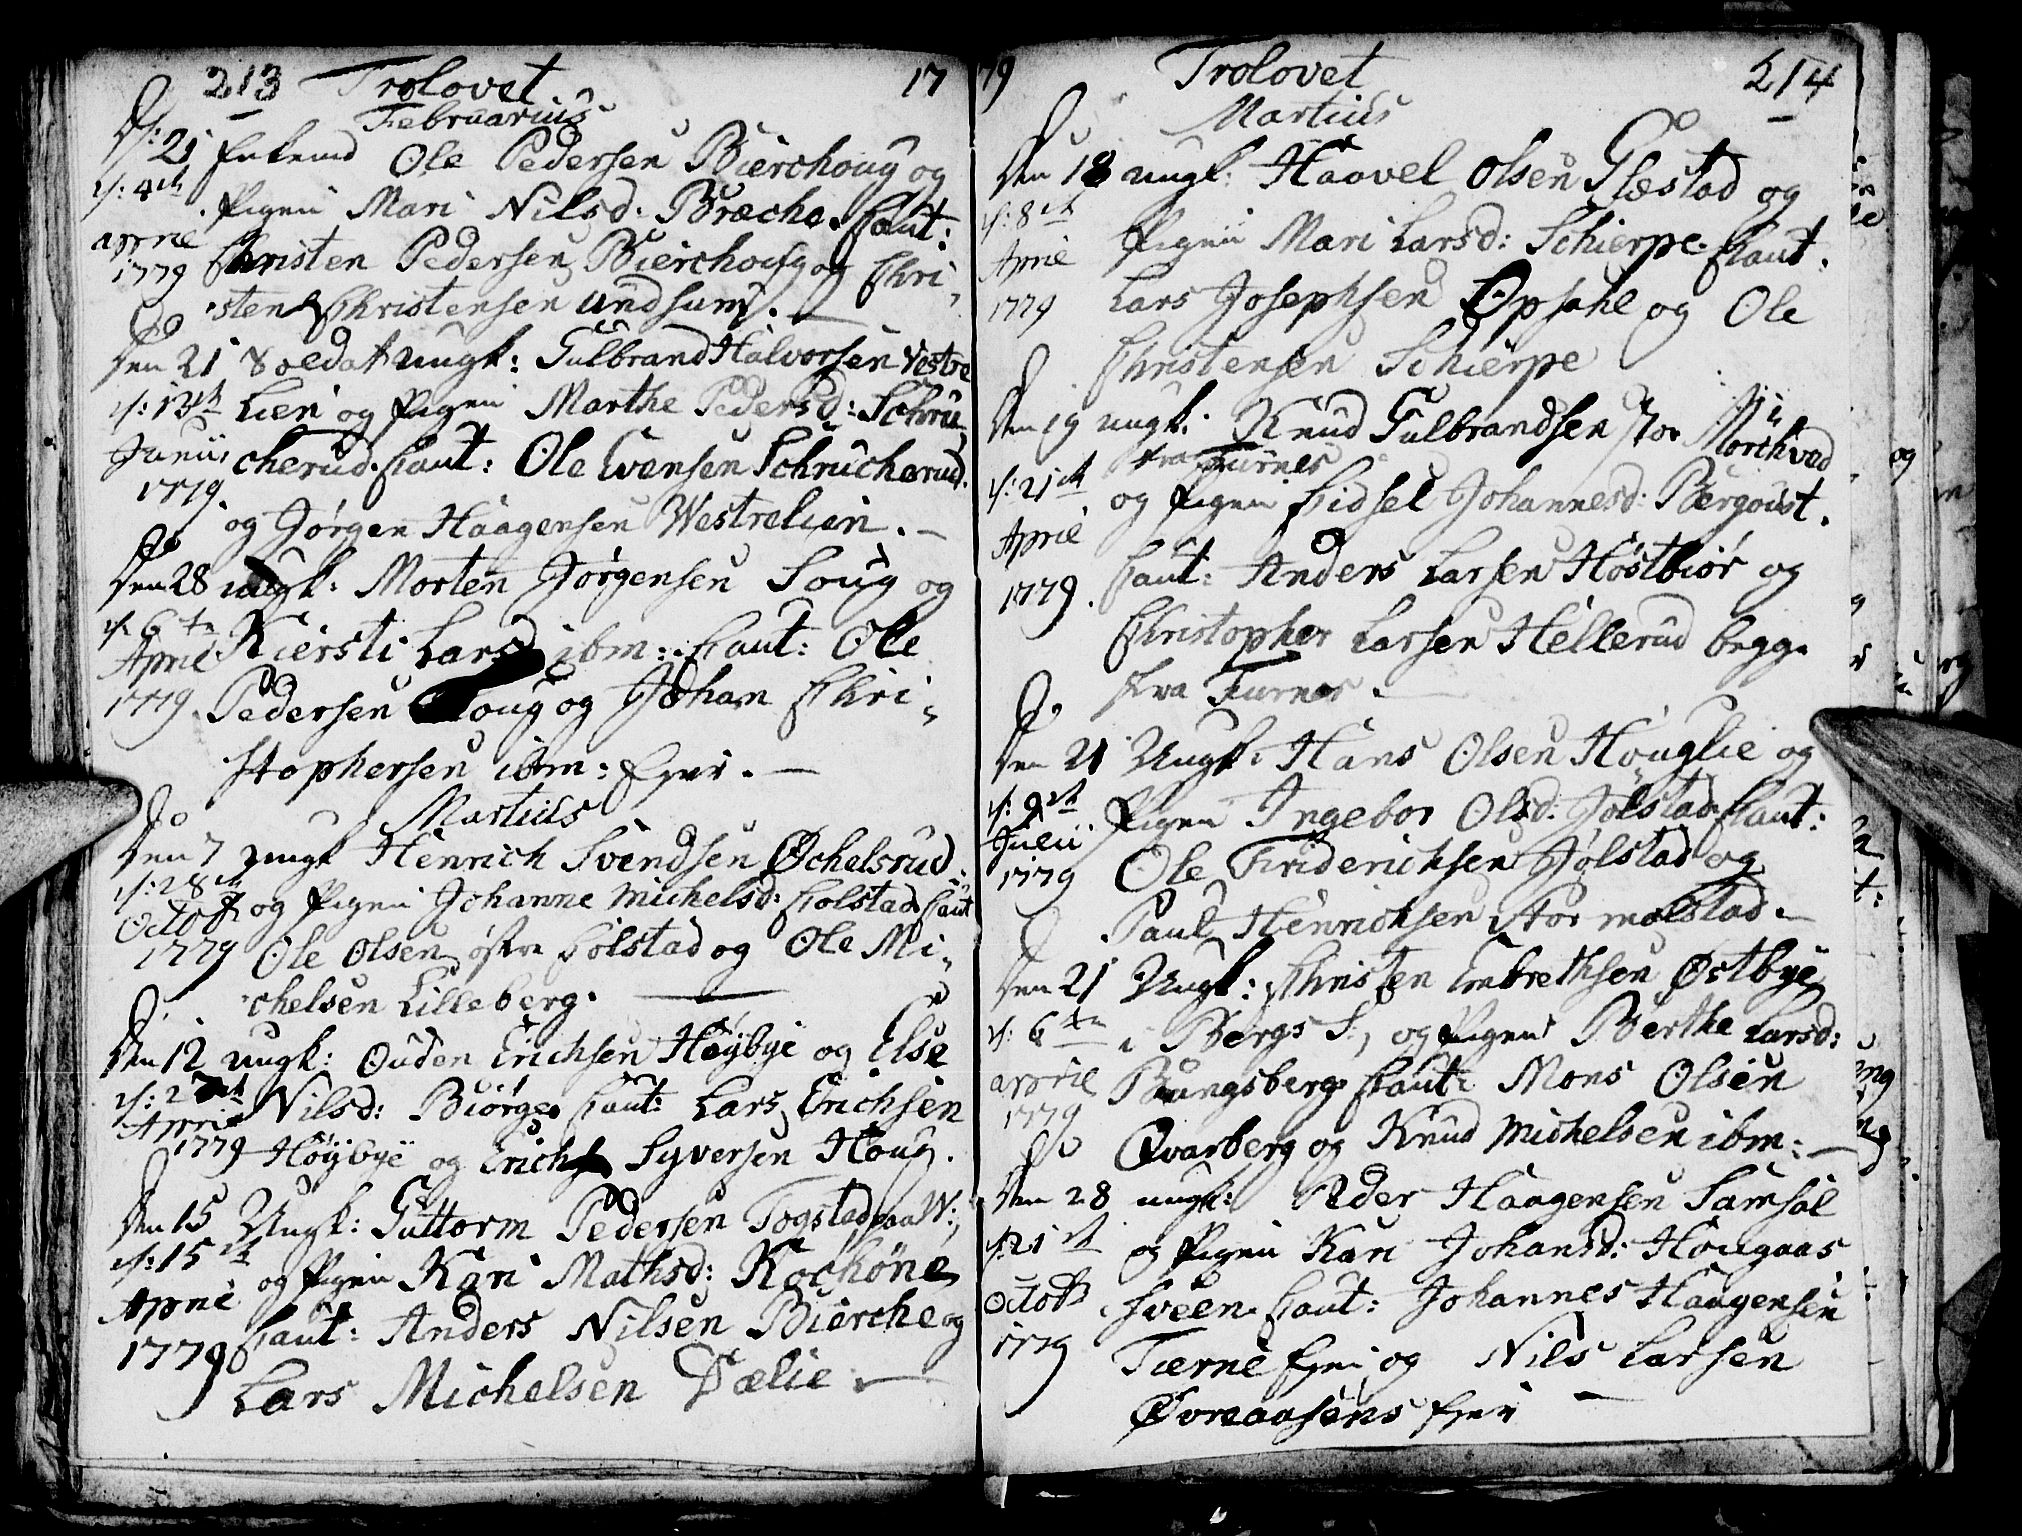 213 Trolovet 17
Februarius
D: 21 Enkemd Ole Pedersen Bierchoug og
c/: 4de Pigen Mari Nilsd: Bræche. Caut:
april Christen Pedersen Bierchoug og Chri-
1779 sten Christensen Undsum. —
Do
Den 21 Soldat ungk: Gulbrand Halvorsen Vestre
c/: 13de Lien og Pigen Marthe Pedersd: Schru-
Junii cherud. Caut: Ole Evensen Schrucherud.
1779. og Jørgen Haagensen Westrelien. —
Do
Den 28 ungk: Morten Jørgensen Soug og
c/: 6te Kiersti Larsd ibm: Caut: Ole
April Pedersen Soug og Johan Chri-
1779. stophersen ibm: Ejer. —
Do Martius
Den 7 ungk Henrich Svendsen Øchelsrud
c/: 28de og Pigen Johanne Michelsd: Colstad. Caut
Octob Ole Olsen østre Colstad og Ole Mi-
1779 chelsen Lilleberg. —
D.
Den 12 ungk: Ouden Erichsen Høybye og Else
c/: 2 Nilsd: Biørge. Caut: Lars Erichsen
April Høybye og Erich Syversen Houg.
1779
Den 15 Ungk: Guttorm Pedersen Togstad paa W:
c/: 15de og Pigen Kari Mathsd: Kochøne
April Caut: Anders Nilsen Bierche og
1779 Lars Michelsen Dælie —
79 Trolovet 214
Martius
Den 18 ungk: Haavel Olsen Glæstad og
c/: 8de Pigen Mari Larsd: Schierpe. Caut.
April Lars Josephsen Opsahl og Ole
1779 Christensen Schierpe
D
Den 19 ungk: Knud Gulbrandsen Stor Morchved
fra Furnes
c/: 21de og Pigen Cidsel Johannesd: Bergoust.
April Caut: Anders Larsen Høstbiør og
1779. Christopher Larsen Hellerud begge
fra Furnes. —
Do
Den 21 Ungk: Hans Olsen Houglie og
c/: 9de Pigen Ingebor Olsd: Jølstad. Caut:
Julii Ole Friderichsen Jølstad og
1779 Paul Henrichsen Stor malstad. —
D
Den 21 Ungk: Christen Embrethsen Østbye
c/: 6te i Bergs S:, og Pigen Berthe Larsd:
april Bungsberg. Caut: Mons Olsen
1779 Qvarberg og Knud Michelsen ibm: —
Do
Den 28 ungk: Peder Haagensen Samsal
c/: 21de og Pigen Kari Johansd: Hougaas
Octob Sveen. Caut: Johannes Haagensen
1779 Tierne Ejer og Nils Larsen
Øvreaasens Ejer —